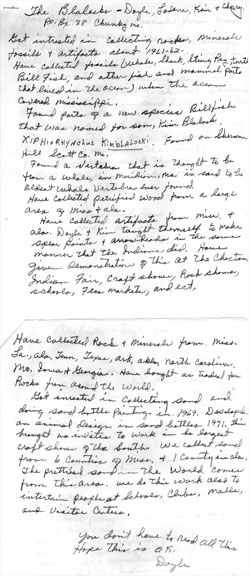 The Blalocks - Doyle, Ladene, Kim & Cheryl
P.O. Bx. 38 Chunky ms.
Got intrested in collecting rocks, minerals
fossils & artifacts about 1961-62.
Have collected fossils (Whale, Shark, Sting Ray, Turtle
Bill Fish, and other fish and mammal parts
that lived in the ocean) when the ocean
covered Mississippi.
Found parts of a new species Billfish
that was named for son, Kim Blalock.
XIPHIORHYNCHUS KIMBLALOCKI. Found on
Hill Scott Co. Ms.
Found a vertebra that is thought to be
from a whale, in Meridian, Ms is said to be
oldest whale vertebra ever found.
Have collected petrified wood from a large
area of Miss & ala.
Have collected artifacts from Miss. &
ala. Doyle & Kim taught themself to make
spear points & arrowheads in the same
manner that the Indians did. Have
given Demonstrations of this at the Choctaw
Indian Fair, Craft shows, Rock shows,
schools, Flea markets, and ect,
Have Collected Rock & Minerals from, Miss.
La, ala, Tenn, Texas, ark, North Carolina,
Mo, Iowa & Georgia. Have bought or traded for
Rocks from around the World.
Got invested in Collecting sand and
doing sand bottle Paintings in 1969. Developed
an animal Design in sand bottles 1971, this
brought an invites to work in the largest
craft shows of the South. We collect sand
from 6 Counties of Miss. & 1 County in ala.
The prettiest sand in the World comes
from this area. we do this work also to
entertain people at Schools, Clubs, Malls,
and Visitor Centers.
You don't have to read all this
Hope this is O.K.
Doyle